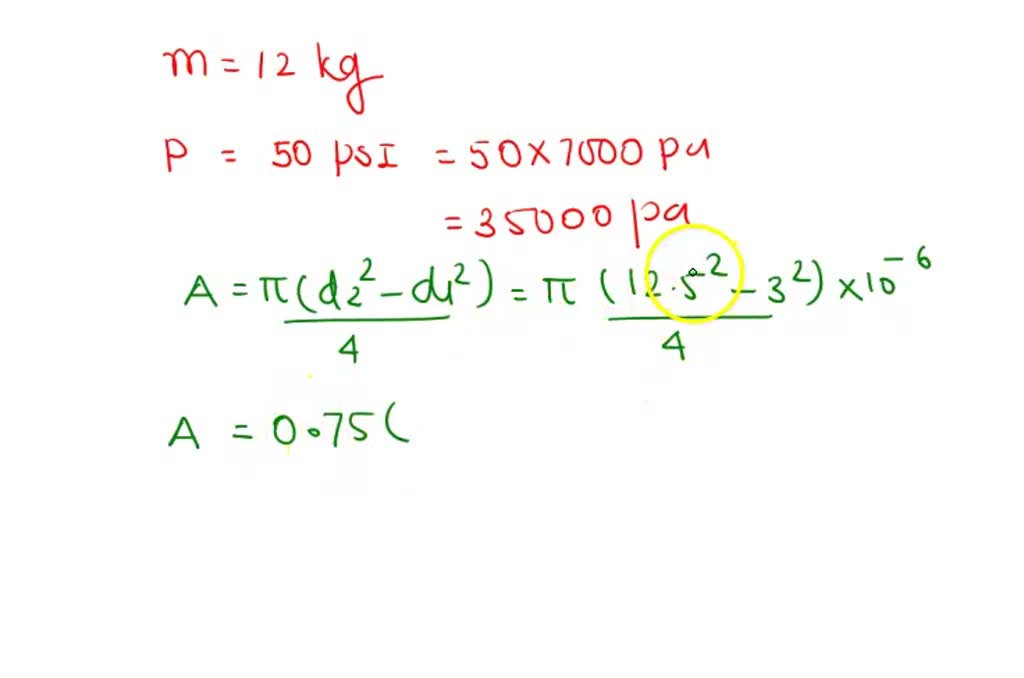 m = 12 kg
P = 50 psI = 50 × 7000 pa
= 35000 pa
A = π(d2² - d1²)/4 = π(12.5² - 3²)/4 × 10⁻⁶
A = 0.75(